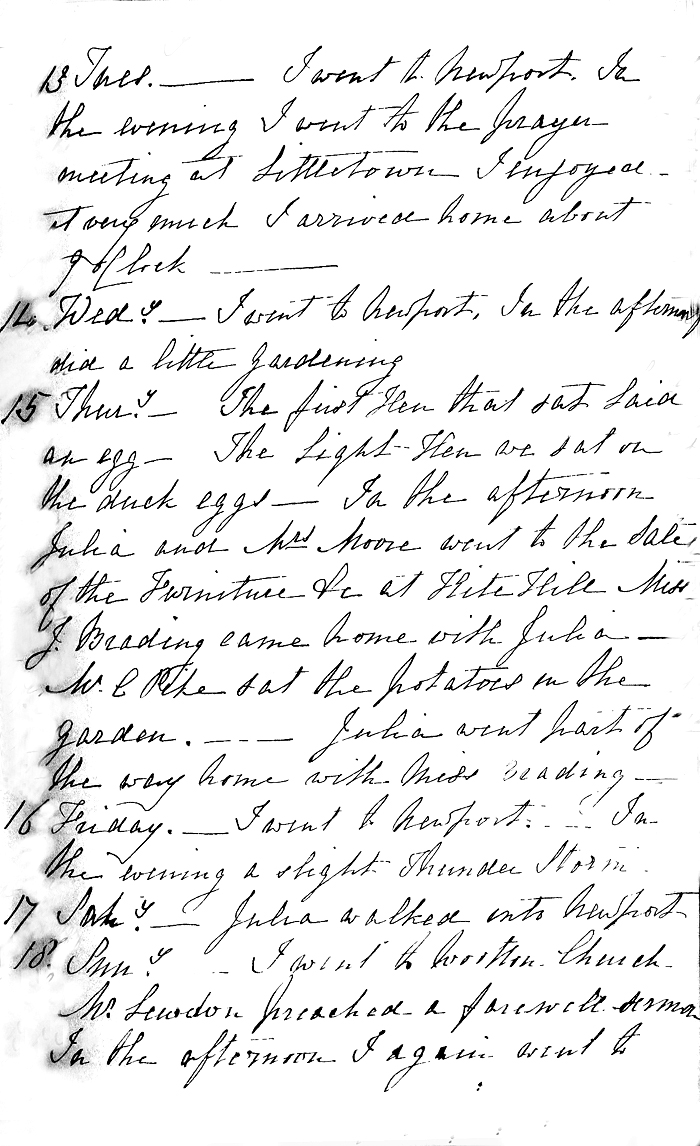 13 Tues. — I went to Newport. In
the evening I went to the prayer
meeting at Littletown I enjoyed
it very much I arrived home about
9 oClock —
14. Wedy — I went to Newport. In the afternoon
did a little gardening
15 Thury — The first Hen that sat laid
an egg — The Light Hen we sat on
the duck eggs — In the afternoon
Julia and Mrs Moore went to the Sale
of the Furniture &c at Flite Hill Miss
J. Brading came home with Julia —
Mr. C Pike sat the potatoes in the
garden. — Julia went part of
the way home with Miss Brading —
16 Friday. — I went to Newport. In
the evening a slight Thunder Storm
17 Saty — Julia walked into Newport
18. Suny — I went to Wootton Church
Mr preached a farewell sermon
In the afternoon I again went to